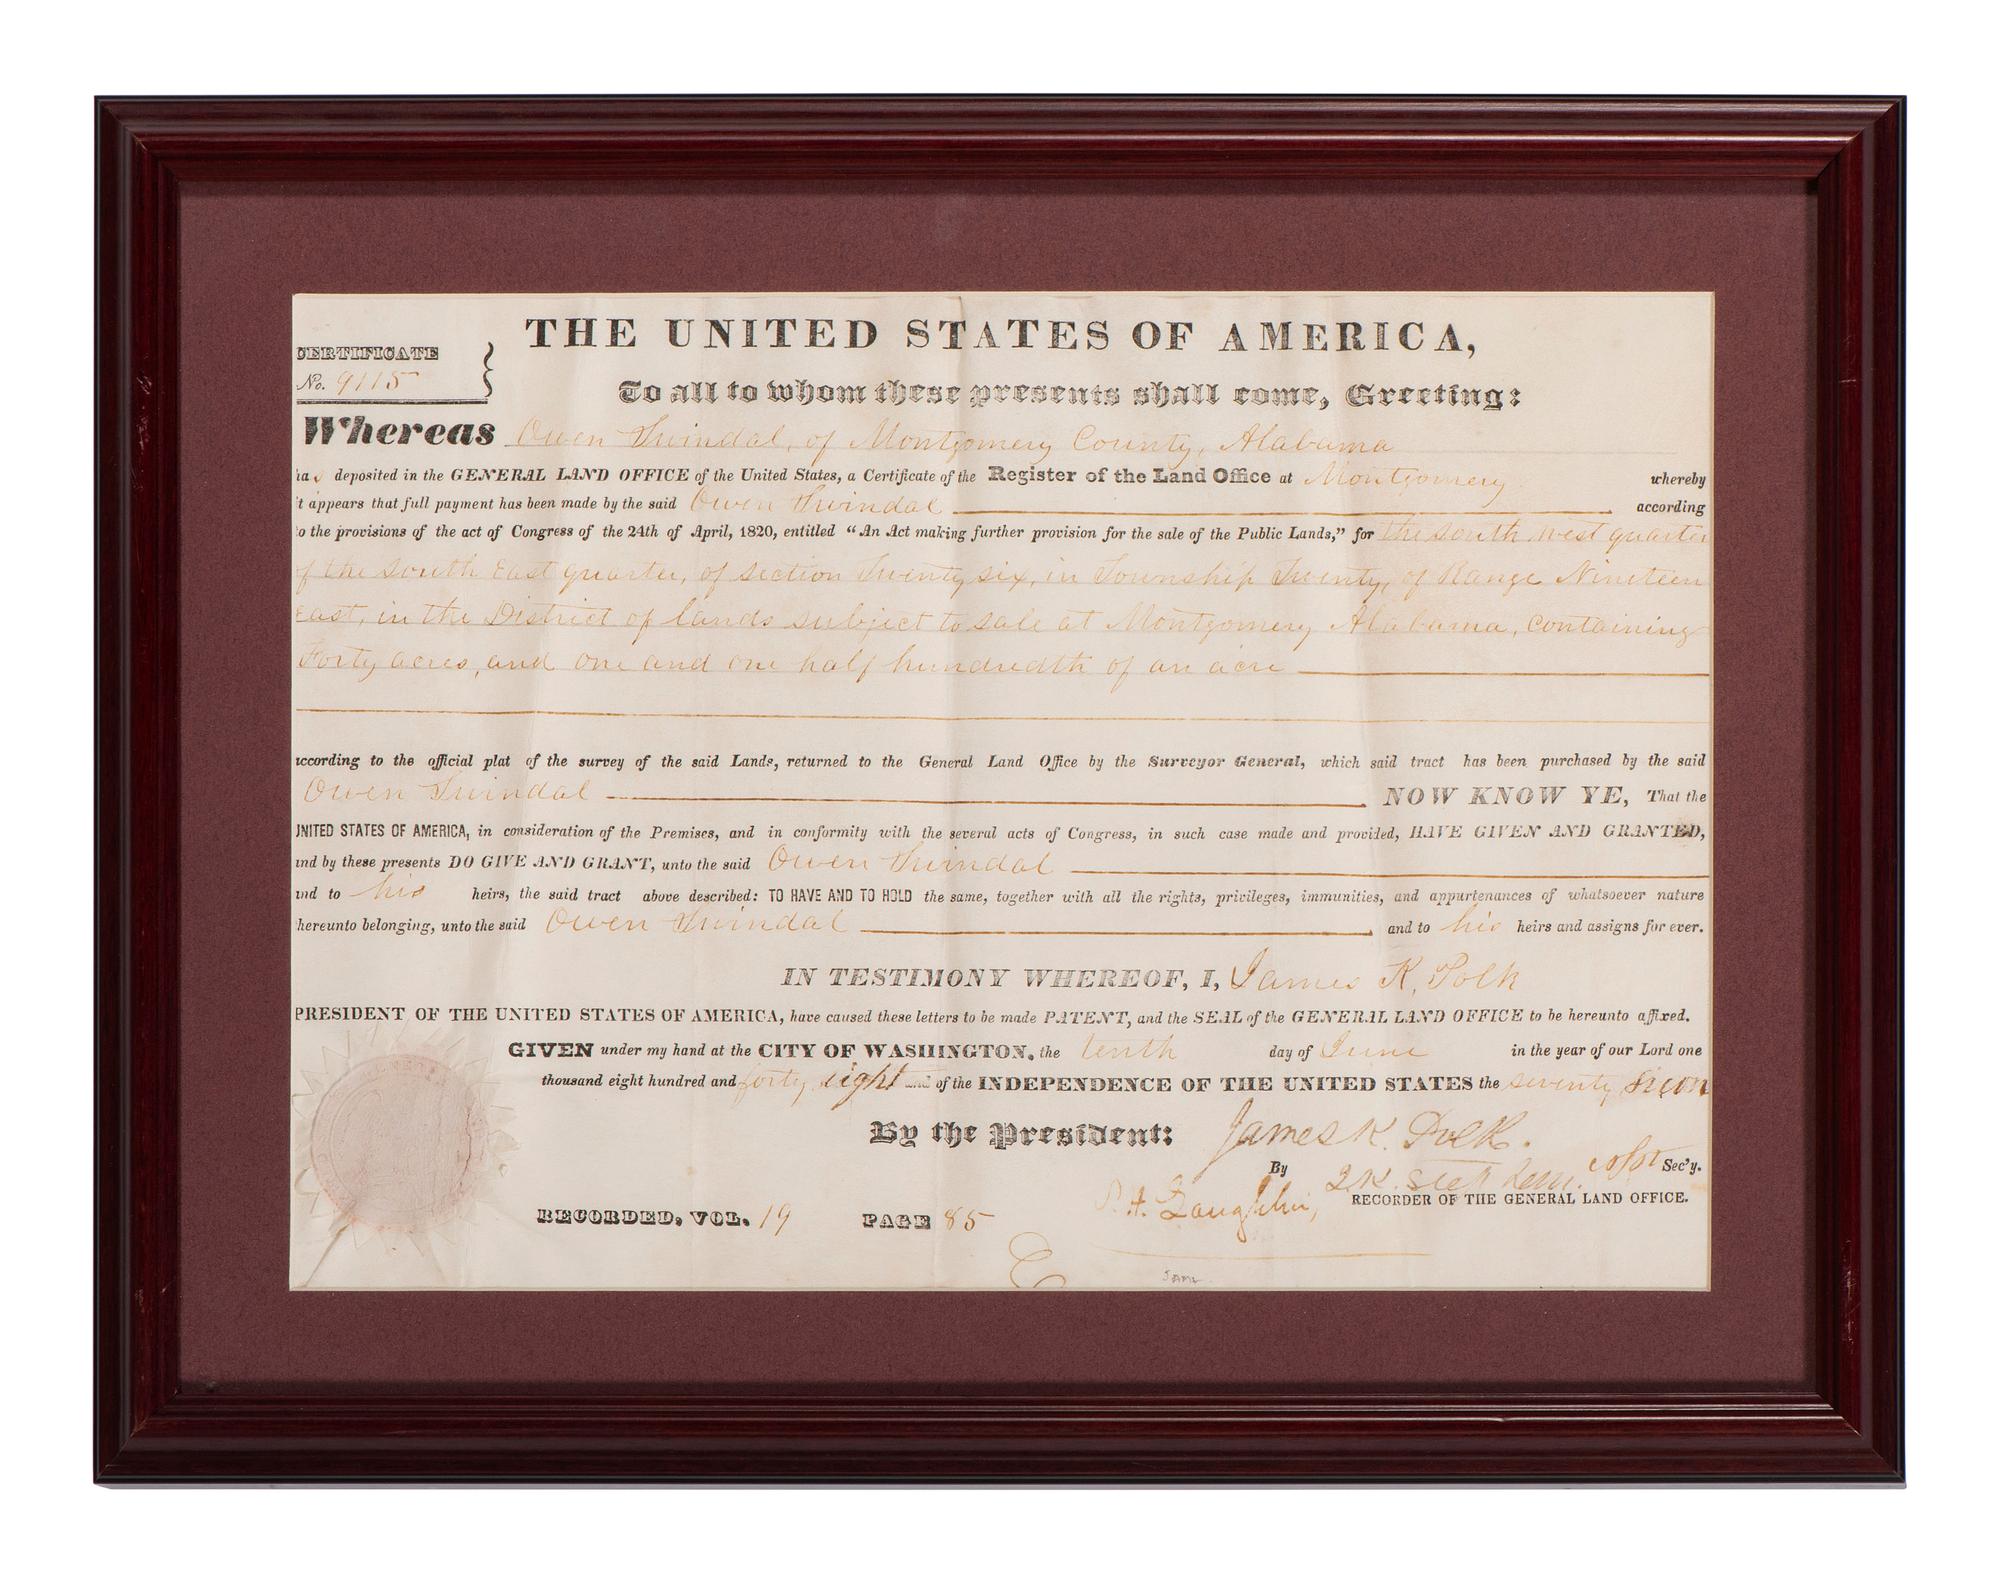 THE UNITED STATES OF AMERICA,
CERTIFICATE
No. 9115
To all to whom these presents shall come, Greeting:
Whereas Owen Swindal, of Montgomery County, Alabama
has deposited in the GENERAL LAND OFFICE of the United States, a Certificate of the Register of the Land Office at Montgomery whereby
it appears that full payment has been made by the said Owen Swindal according
to the provisions of the act of Congress of the 24th of April, 1820, entitled "An Act making further provision for the sale of the Public Lands," for the South West quarter
of the South East quarter, of Section Twenty six, in Township Twenty, of Range Nineteen
East, in the District of lands subject to sale at Montgomery Alabama, containing
Forty acres, and one and one half hundredth of an acre
according to the official plat of the survey of the said Lands, returned to the General Land Office by the Surveyor General, which said tract has been purchased by the said
Owen Swindal NOW KNOW YE, That the
UNITED STATES OF AMERICA, in consideration of the Premises, and in conformity with the several acts of Congress, in such case made and provided, HAVE GIVEN AND GRANTED,
and by these presents DO GIVE AND GRANT, unto the said Owen Swindal
and to his heirs, the said tract above described: TO HAVE AND TO HOLD the same, together with all the rights, privileges, immunities, and appurtenances of whatsoever nature
thereunto belonging, unto the said Owen Swindal and to his heirs and assigns for ever.
IN TESTIMONY WHEREOF, I, James K. Polk
PRESIDENT OF THE UNITED STATES OF AMERICA, have caused these letters to be made PATENT, and the SEAL of the GENERAL LAND OFFICE to be hereunto affixed.
GIVEN under my hand at the CITY OF WASHINGTON, the tenth day of June in the year of our Lord one
thousand eight hundred and forty eight and of the INDEPENDENCE OF THE UNITED STATES the seventy secon
By the President: James K. Polk.
By J.K. Stephens. Sec'y.
S. H. Laughlin, RECORDER OF THE GENERAL LAND OFFICE.
RECORDED, VOL. 19 PAGE 85